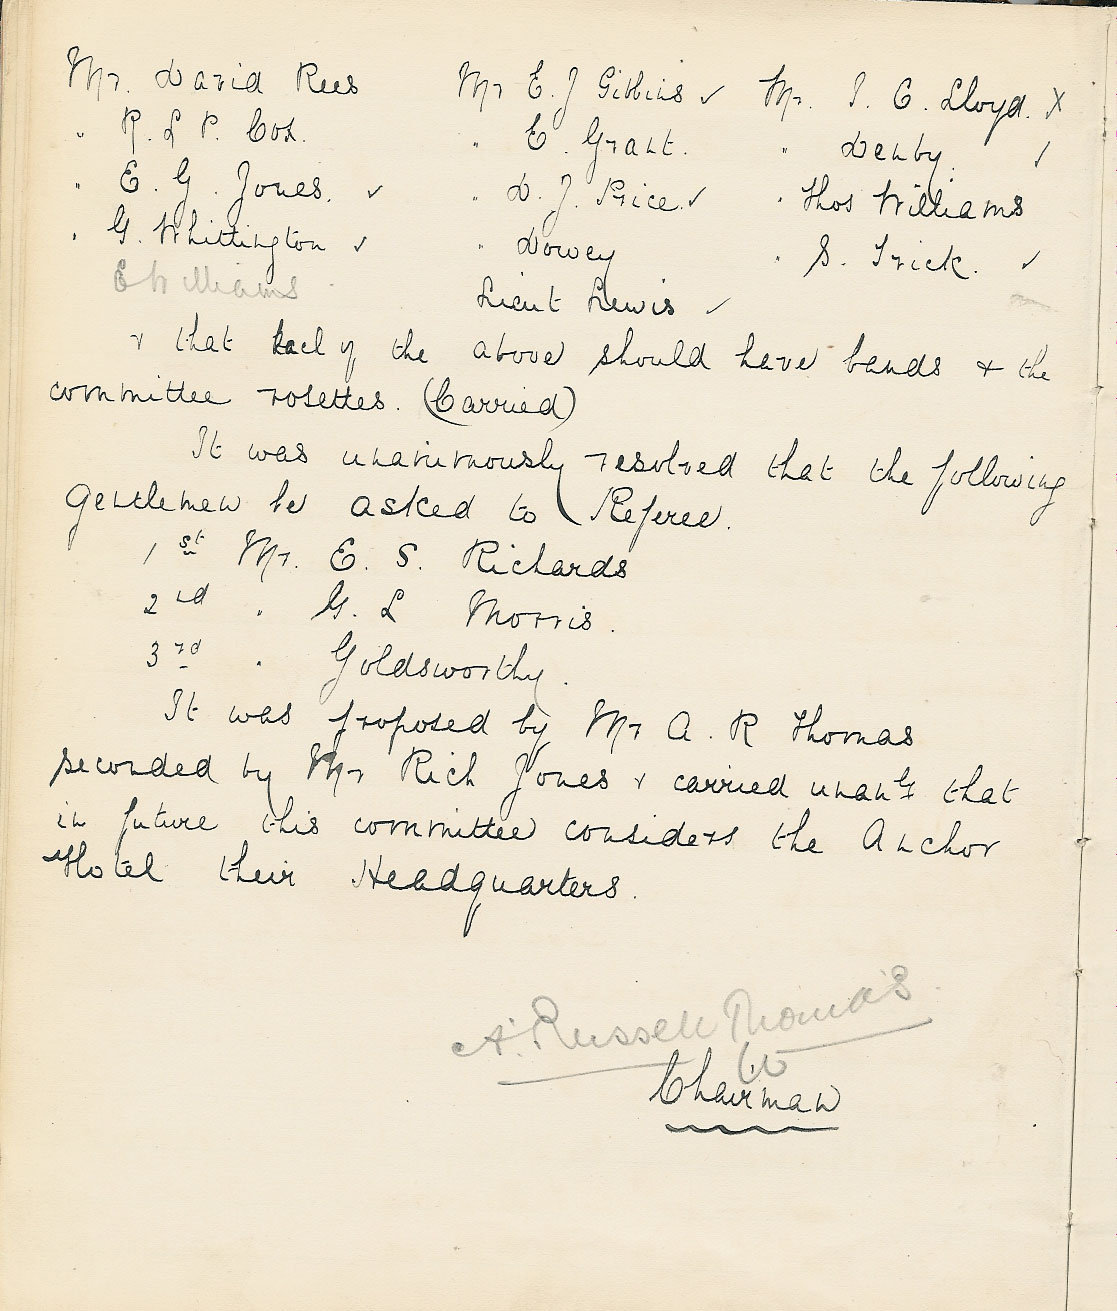 Mr. David Rees Mr E. J Gibbins ✓ Mr. J. C. Lloyd. X
" R. L P. Cox. " E. Grant. " Denby. ✓
" E. G. Jones. ✓ " D. J. Price. ✓ " Thos Williams
" G. Whittington ✓ " Dowey " S. Trick. ✓
E Williams Lieut Lewis ✓
& that each of the above should have bands & the
committee rosettes. (Carried)
It was unanimously resolved that the following
Gentlemen be asked to Referee.
1st Mr. E. S. Richards
2nd " G. L Morris.
3rd " Goldsworthy.
It was proposed by Mr A. R Thomas
seconded by Mr Rich Jones & carried unanly that
in future this committee considers the Anchor
Hotel their Headquarters.
A. Russell Thomas
Chairman